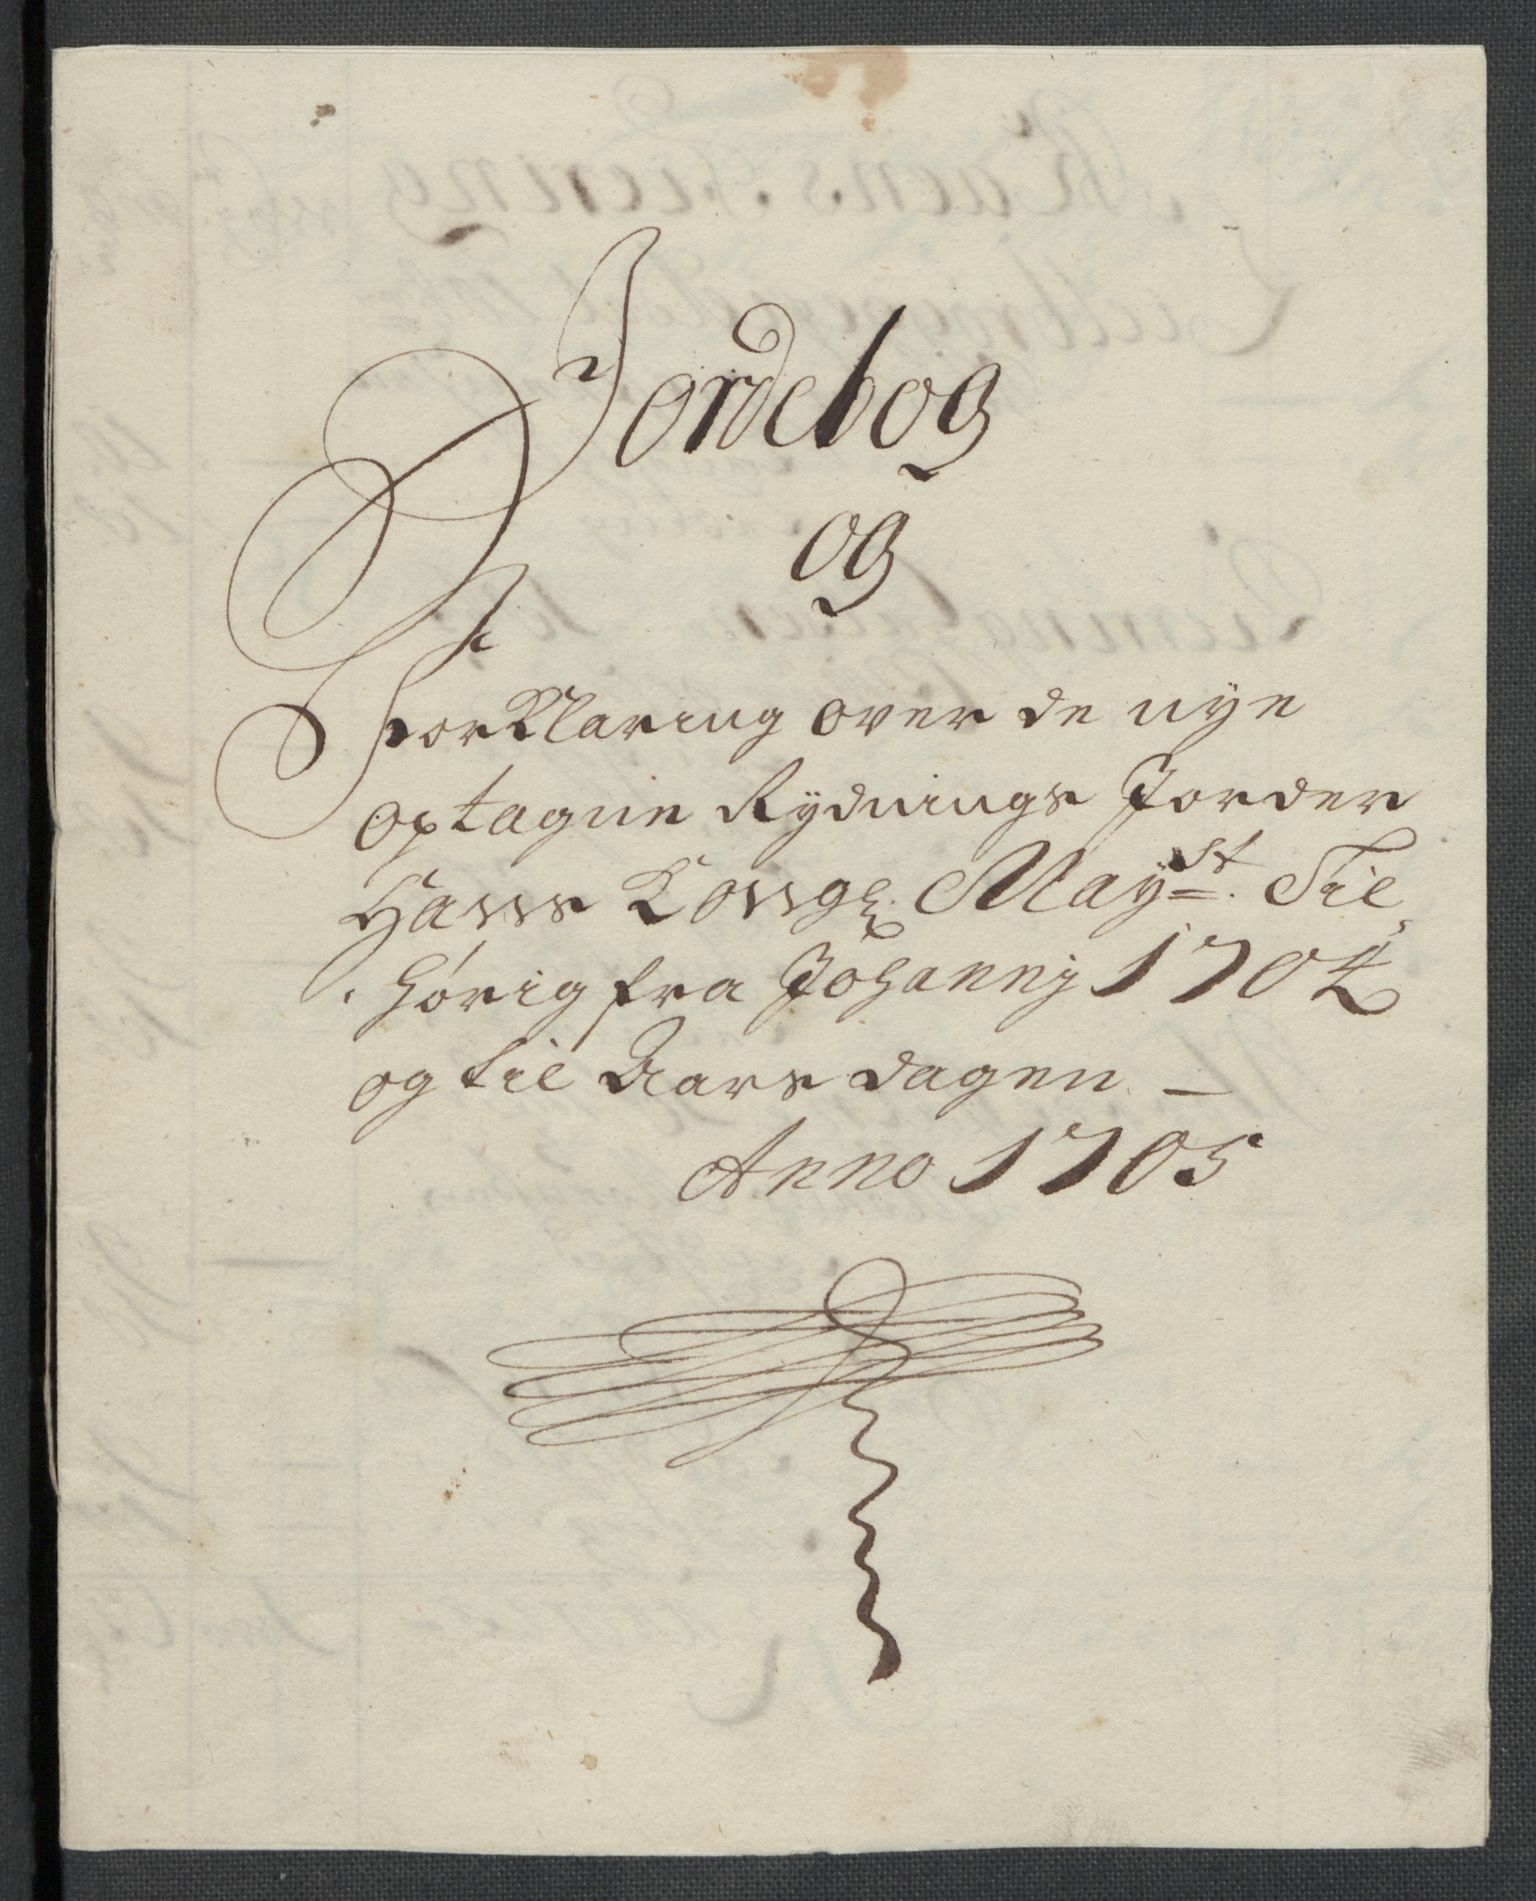 Jordebog
og
Forklaring over de nye
optagne Rydnings Jorder
Hans Kongl. May:st Til
hørig fra Johannj 1704
og til Aars dagen
Anno 1705